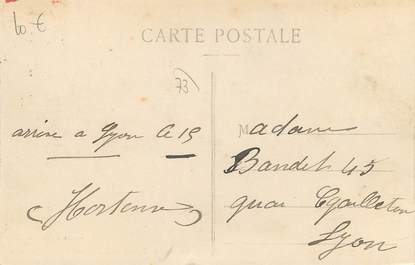 10 €
CARTE POSTALE
73
arrive a Lyon le 15
Hortense
Madame
Bandet 45
quai Gailleton
Lyon